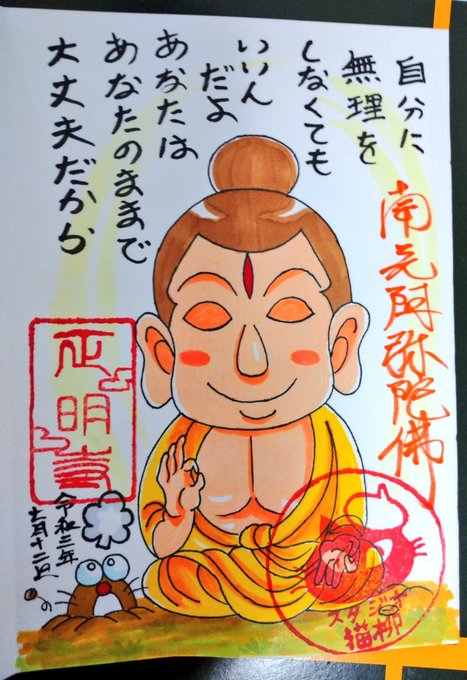 南无阿弥陀佛
自分に
無理を
しなくても
いいん
だよ
あなたは
あなたのままで
大丈夫だから
正明
令和三年
七月十二日
スタジオ
猫柳